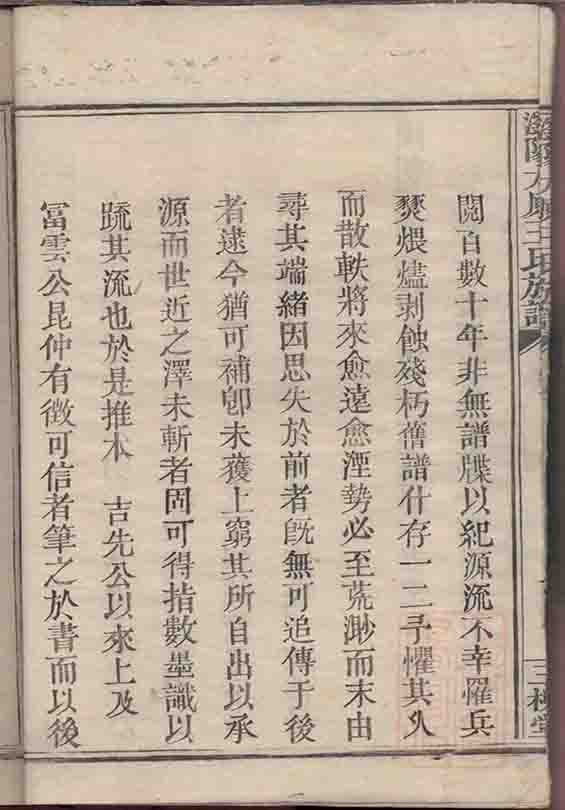 閱百數十年非無譜牒以紀源流不幸罹兵
燹煨燼剥蝕殘朽舊譜什存一二予懼其久
而散軼將來愈遠愈湮勢必至荒渺而末由
尋其端緒因思失於前者旣無可追傳于後
者逮今猶可補卽未獲上窮其所自出以承
源而世近之澤未斬者固可得指數墨識以
䟽其流也於是推本　吉先公以來上及
冨雲公昆仲有徵可信者筆之於書而以後
王氏族譜
三槐堂